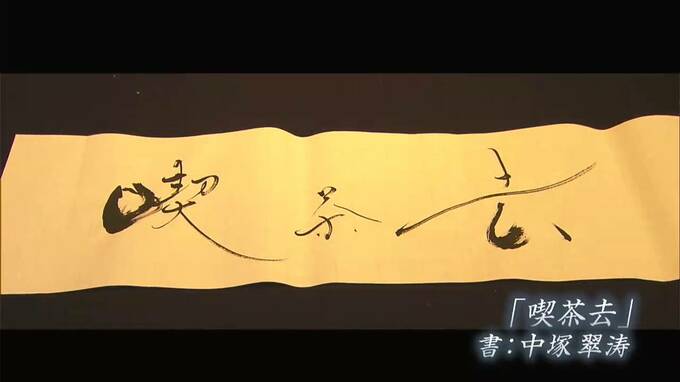 喫茶去
「喫茶去」
書:中塚翠涛